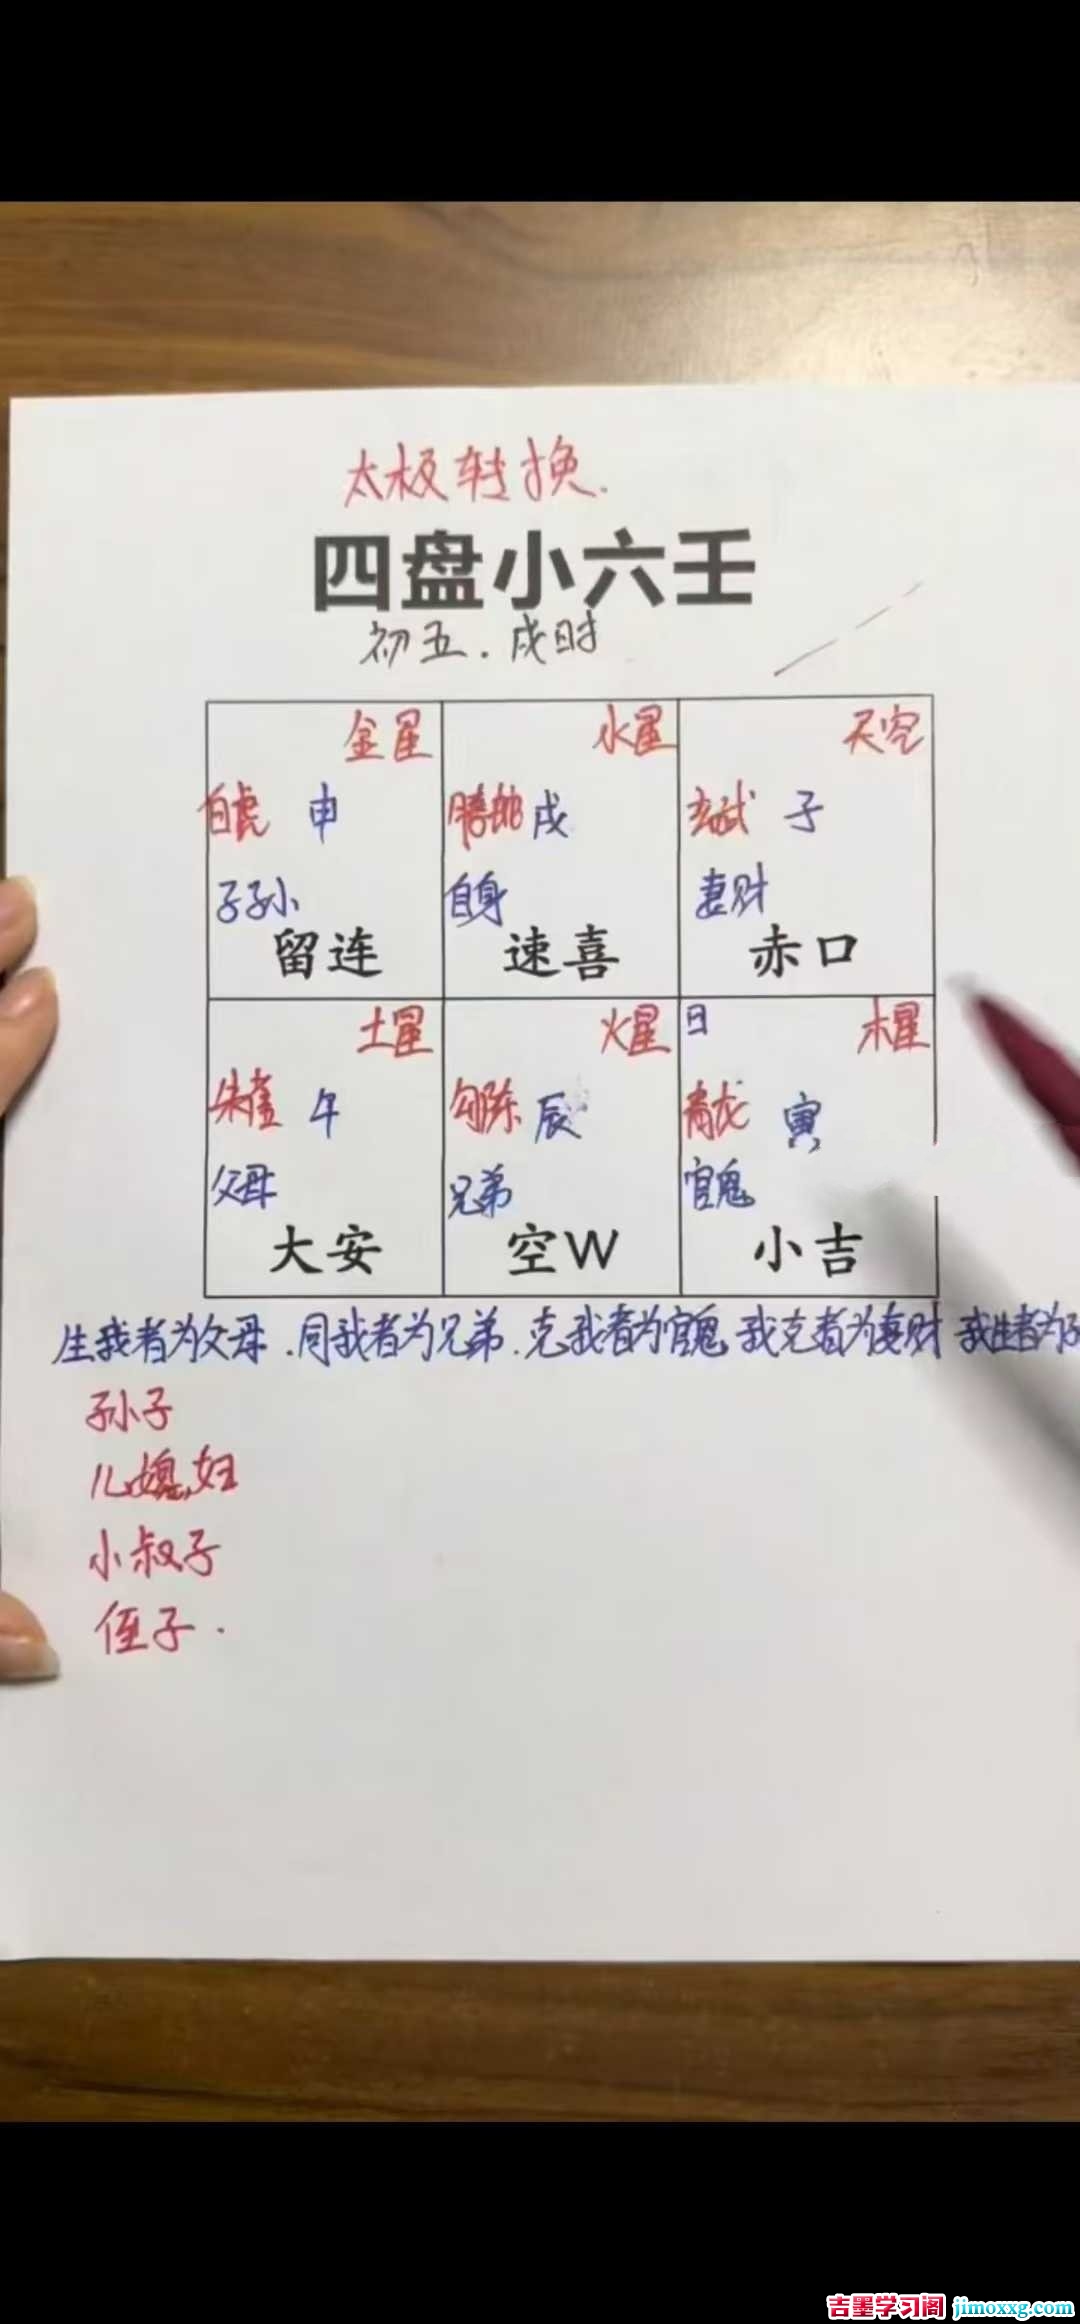 太极转换.
四盘小六壬
初五.戌时
金星 水星 天空
白虎 申 螣蛇 戌 玄武 子
子孙 自身 妻财
留连 速喜 赤口
土星 火星 日 木星
朱雀 午 勾陈 辰 青龙 寅
父母 兄弟 官鬼
大安 空W 小吉
生我者为父母.同我者为兄弟.克我者为官鬼 我克者为妻财 我生者为子
孙子
儿媳妇
小叔子
侄子.
吉墨学习阁 jimoxxg.com